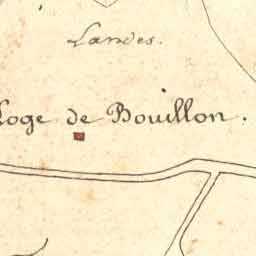 Landes.
Loge de Bouillon.